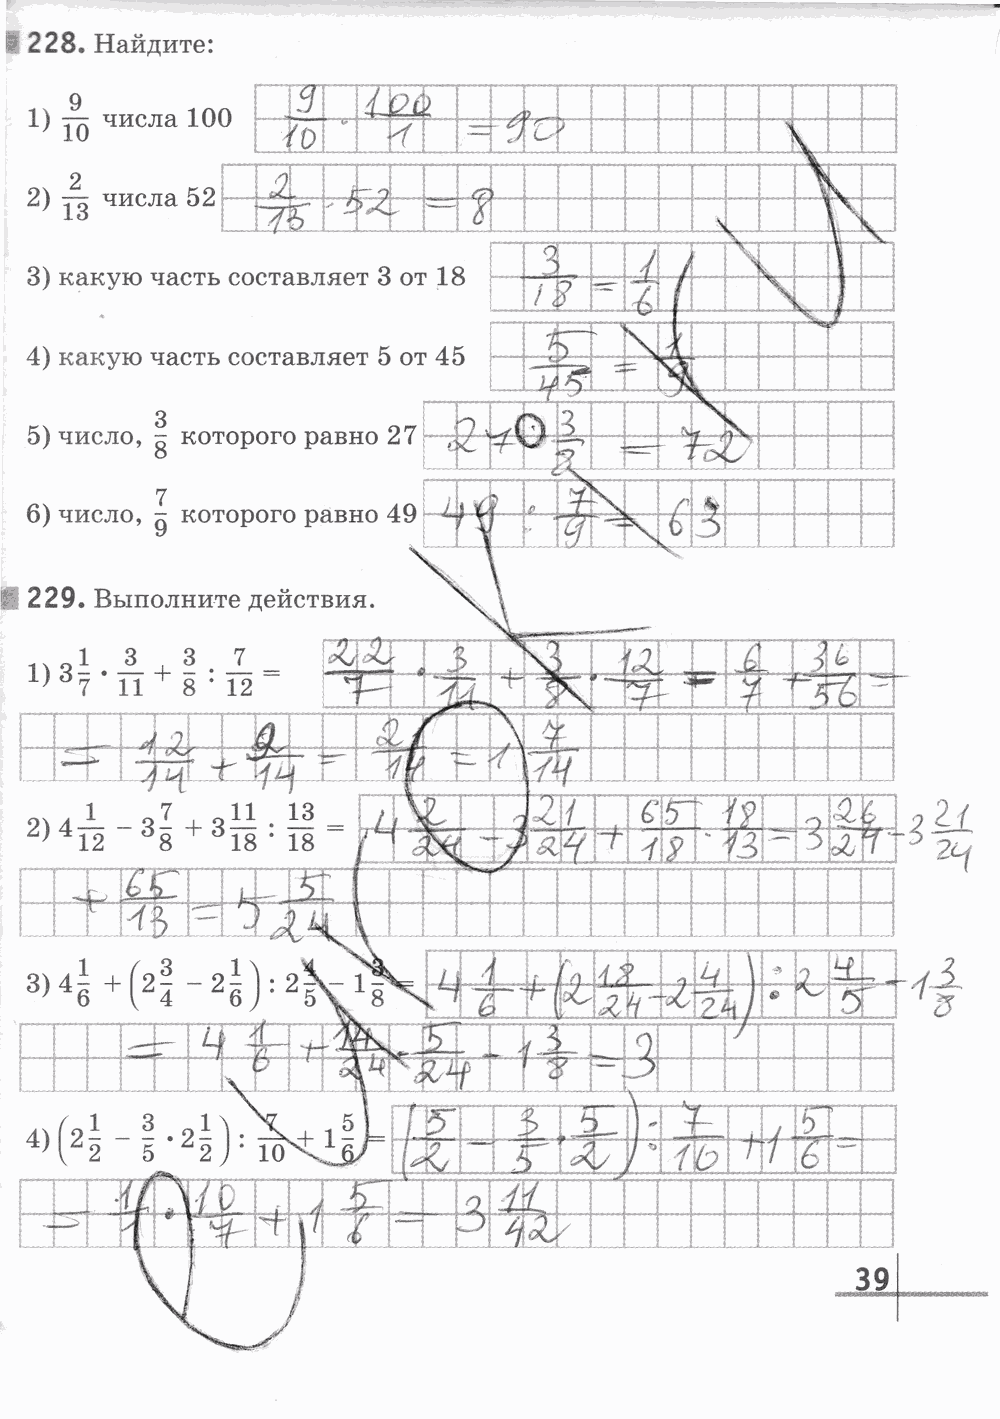 228. Найдите:
1) 9/10 числа 100 9/10 · 100/1 = 90
2) 2/13 числа 52 2/13 · 52 = 8
3) какую часть составляет 3 от 18 3/18 = 1/6
4) какую часть составляет 5 от 45 5/45 = 1/9
5) число, 3/8 которого равно 27 27 : 3/8 = 72
6) число, 7/9 которого равно 49 49 : 7/9 = 63
229. Выполните действия.
1) 3 1/7 · 3/11 + 3/8 : 7/12 = 22/7 · 3/11 + 3/8 · 12/7 = 6/7 + 36/56 =
= 12/14 + 9/14 = 21/14 = 1 7/14
2) 4 1/12 − 3 7/8 + 3 11/18 : 13/18 = 4 2/24 − 3 21/24 + 65/18 · 18/13 = 3 26/24 − 3 21/24
+ 65/13 = 5 5/24
3) 4 1/6 + (2 3/4 − 2 1/6) : 2 4/5 − 1 3/8 = 4 1/6 + (2 18/24 − 2 4/24) : 2 4/5 − 1 3/8
= 4 1/6 + 14/24 · 5/24 − 1 3/8 = 3
4) (2 1/2 − 3/5 · 2 1/2) : 7/10 + 1 5/6 = (5/2 − 3/5 · 5/2) : 7/10 + 1 5/6 =
= 1/1 · 10/7 + 1 5/6 = 3 11/42
39